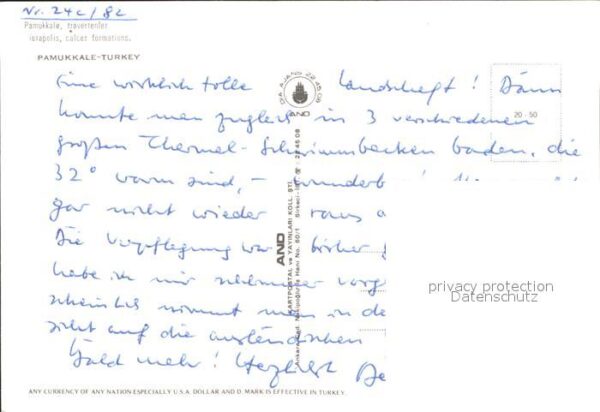 Nr. 24c/82
Pamukkale, travertenler
ierapolis, calces formations.
PAMUKKALE-TURKEY
Eine wirklich tolle Landschaft! Dann
konnte man zugleich in 3 verschiedenen
20 - 50
großen Thermal-Schwimmbecken baden, die
32° warm sind, - wunderb
gar nicht wieder raus
Die Verpflegung war bisher
habe ich mir schlimmer vorg
scheinlich nimmt man in de
sicht auf die ausländischen
Bald mehr! Herzlichst
AND
AND
KARTPOSTAL ve YAYINLARI KOLL. ŞTİ.
privacy protection
Datenschutz
ANY CURRENCY OF ANY NATION ESPECIALLY U.S.A. DOLLAR AND D. MARK IS EFFECTIVE IN TURKEY.